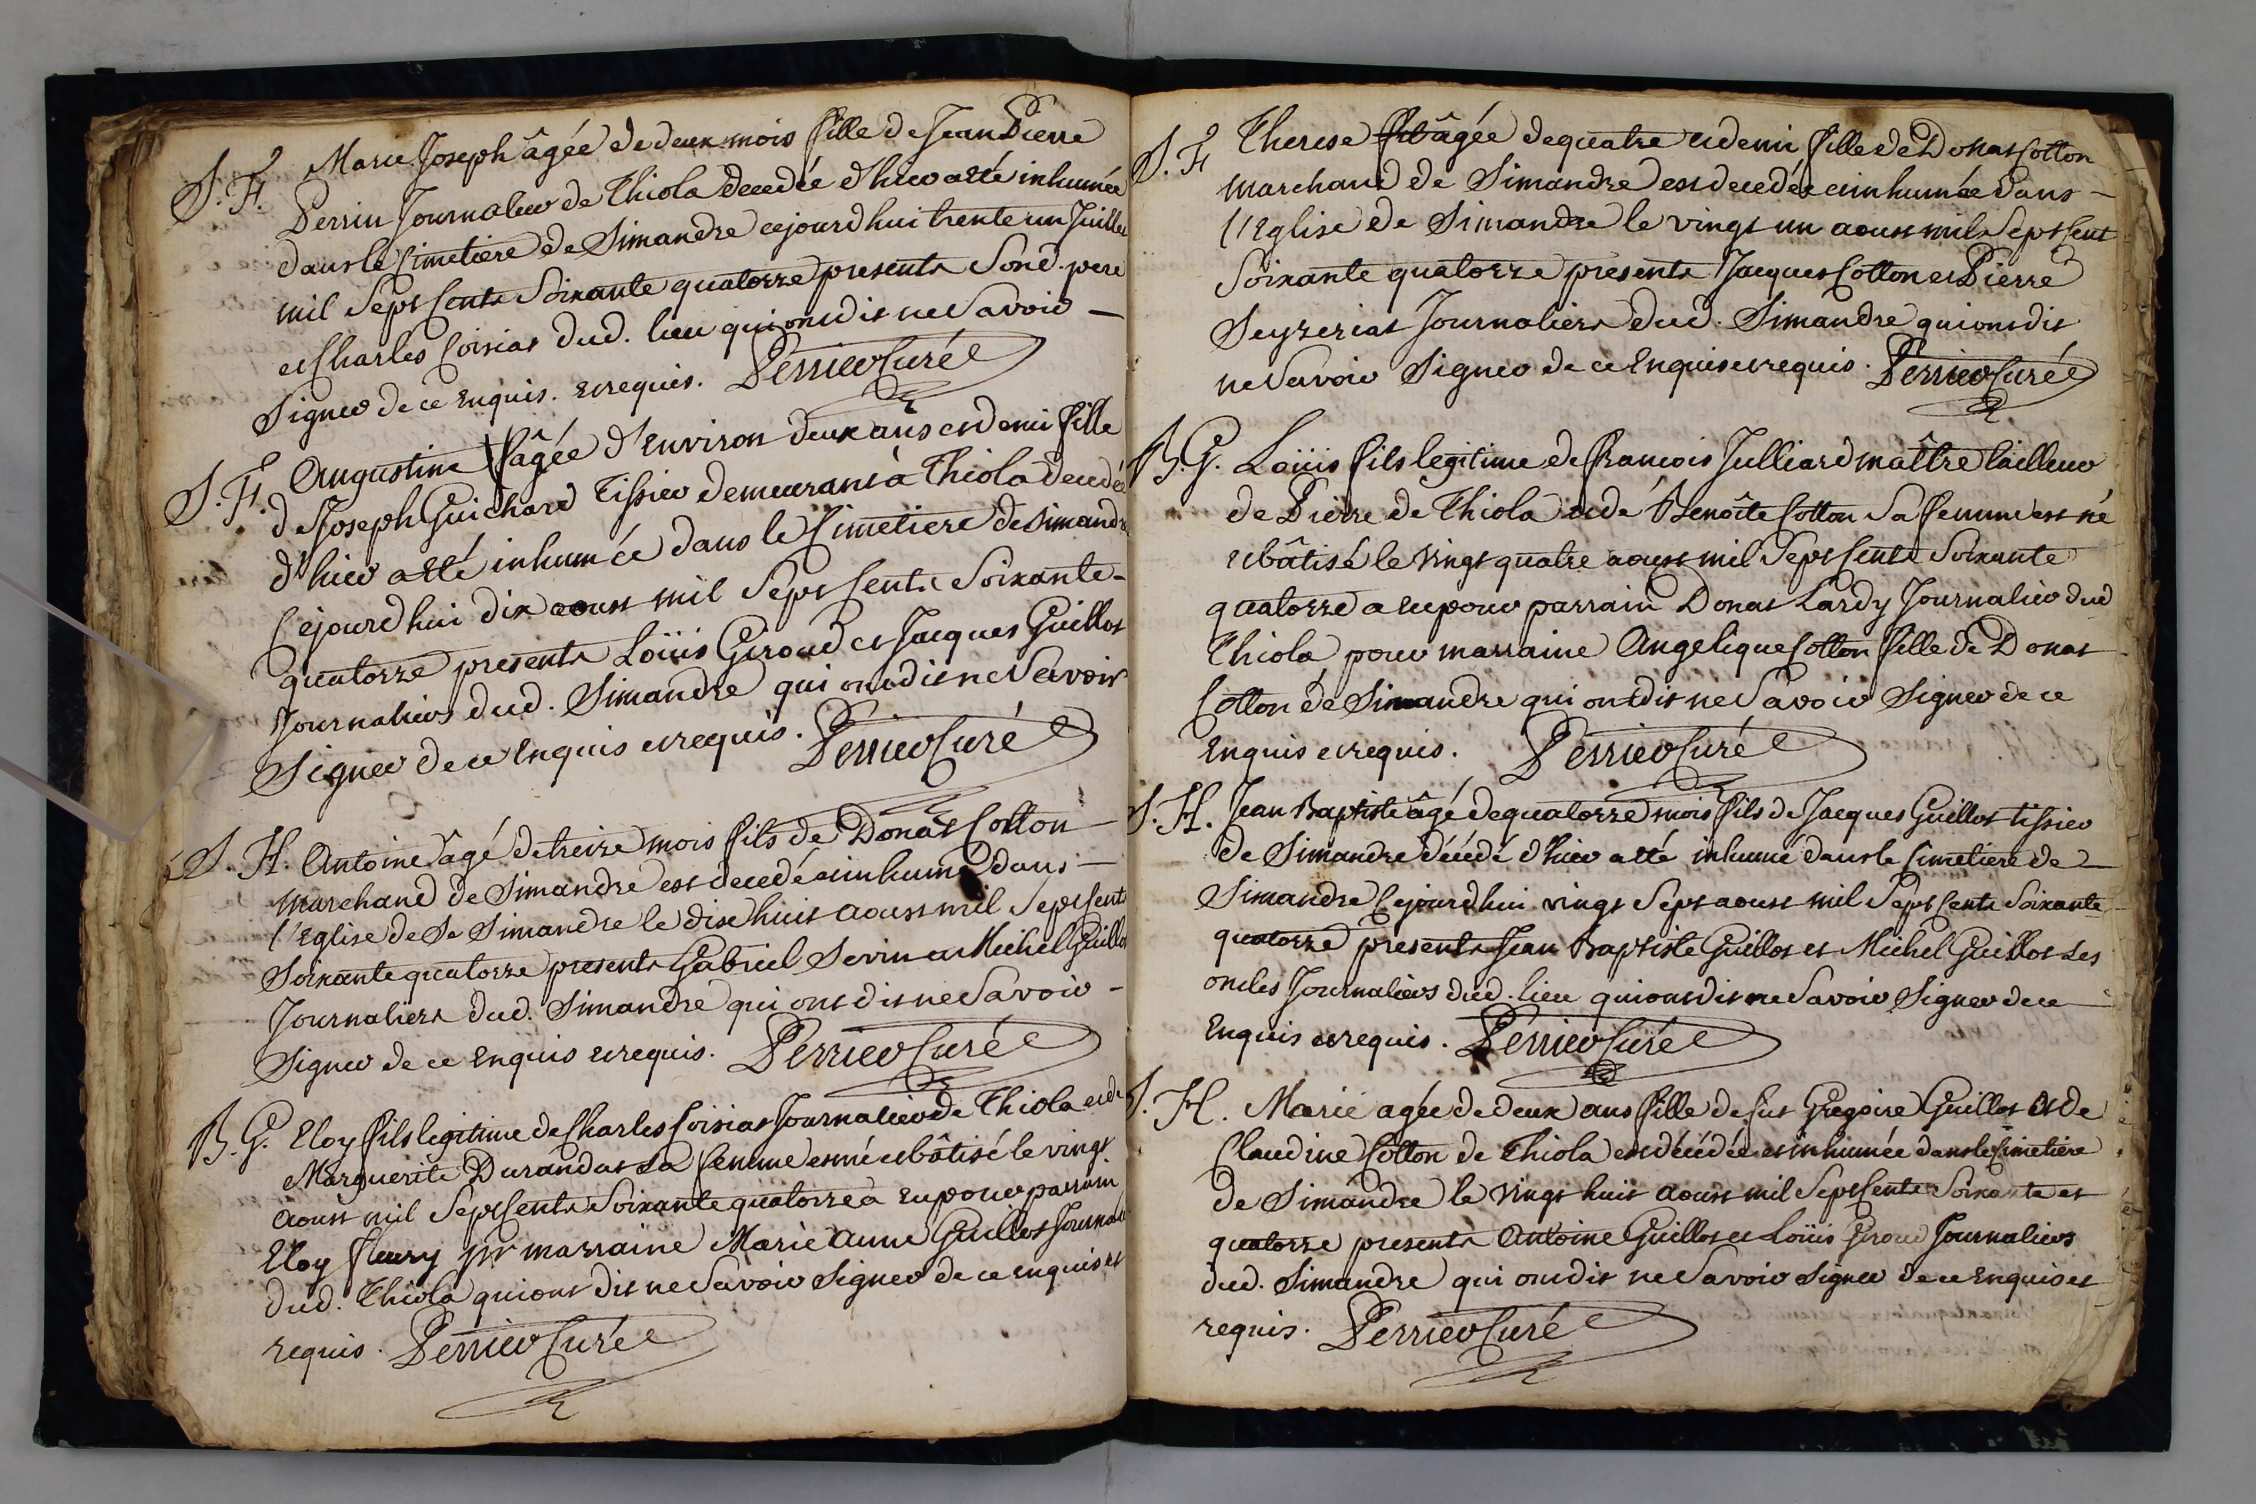 S. F. Marie Joseph âgée de deux mois fille de Jean Pierre
Perrin Journalier de Thiola decedée d'hier a eté inhumée
dans le Cimetiere de Simandre cejourdhui trente un Juillet
mil Sept Cents Soixante quatorze presents Sond. pere
et Charles Coisiat dud. lieu qui ont dit ne Savoir
Signer de ce Enquis. et requis. Perrier Curé
S. F. Augustine âgée d'Environ deux ans et demi fille
de Joseph Guichard Tissier demeurant à Thiola decedée
d'hier a eté inhumée dans le Cimetiere de Simandre
Cejourdhui dix aoust mil Sept Cents Soixante
quatorze presents Loüis Giroud et Jacques Guillot
Journaliers dud. Simandre qui ont dit ne Savoir
Signer de ce Enquis et requis. Perrier Curé
S. H. Antoine âgé de treize mois fils de Donat Cotton
marchand de Simandre est decedé et inhumé dans
l'Eglise de Se Simandre le dixe huit aoust mil Sept Cents
Soixante quatorze presents Gabriel Sevin et Michel Guillot
Journaliers dud. Simandre qui ont dit ne Savoir
Signer de ce Enquis et requis. Perrier Curé
B. G. Eloy fils legitime de Charles Coisiat Journalier de Thiola et de
Marguerite Durandat Sa femme est né et bâtisé le vingt
aoust mil Sept Cents Soixante quatorze a eu pour parrain
Eloy fleury pr marraine Marie Anne Guillot
dud. Thiola qui ont dit ne Savoir Signer de ce enquis et
requis. Perrier Curé
S. F. Therese âgée de quatre et demi fille de Donat Cotton
marchand de Simandre est decedée et inhumée dans
l'Eglise de Simandre le vingt un aoust mil Sept Cent
Soixante quatorze presents Jacques Cotton et Pierre
Seyzeriat Journaliers dud. Simandre qui ont dit
ne Savoir Signer de ce Enquis et requis. Perrier Curé
B. G. Loüis fils legitime de francois Julliard maître tailleur
de Pierre de Thiola et de Benoîte Cotton Sa femme est né
et bâtisé le vingt quatre aoust mil Sept Cents Soixante
quatorze a eu pour parrain Donat Lardy Journalier dud
Thiola pour marraine Angelique Cotton fille de Donat
Cotton de Simandre qui ont dit ne Savoir Signer de ce
Enquis et requis. Perrier Curé
S. H. Jean Baptiste âgé de quatorze mois fils de Jacques Guillot tissier
de Simandre décédé d'hier a eté inhumé dans le Cimetiere de
Simandre Cejourdhui vingt Sept aoust mil Sept Cents Soixante
quatorze presents Jean Baptiste Guillot et Michel Guillot Ses
oncles Journaliers dud. lieu qui ont dit ne Savoir Signer de ce
Enquis et requis. Perrier Curé
S. H. Marie agée de deux ans fille de fut Gregoire Guillot et de
Claudine Cotton de Thiola est décédée et inhumée dans le Cimetiere
de Simandre le vingt huit aoust mil Sept Cents Soixante et
quatorze presents Antoine Guillot et Loüis Giroud Journaliers
dud. Simandre qui ont dit ne Savoir Signer de ce Enquis et
requis. Perrier Curé